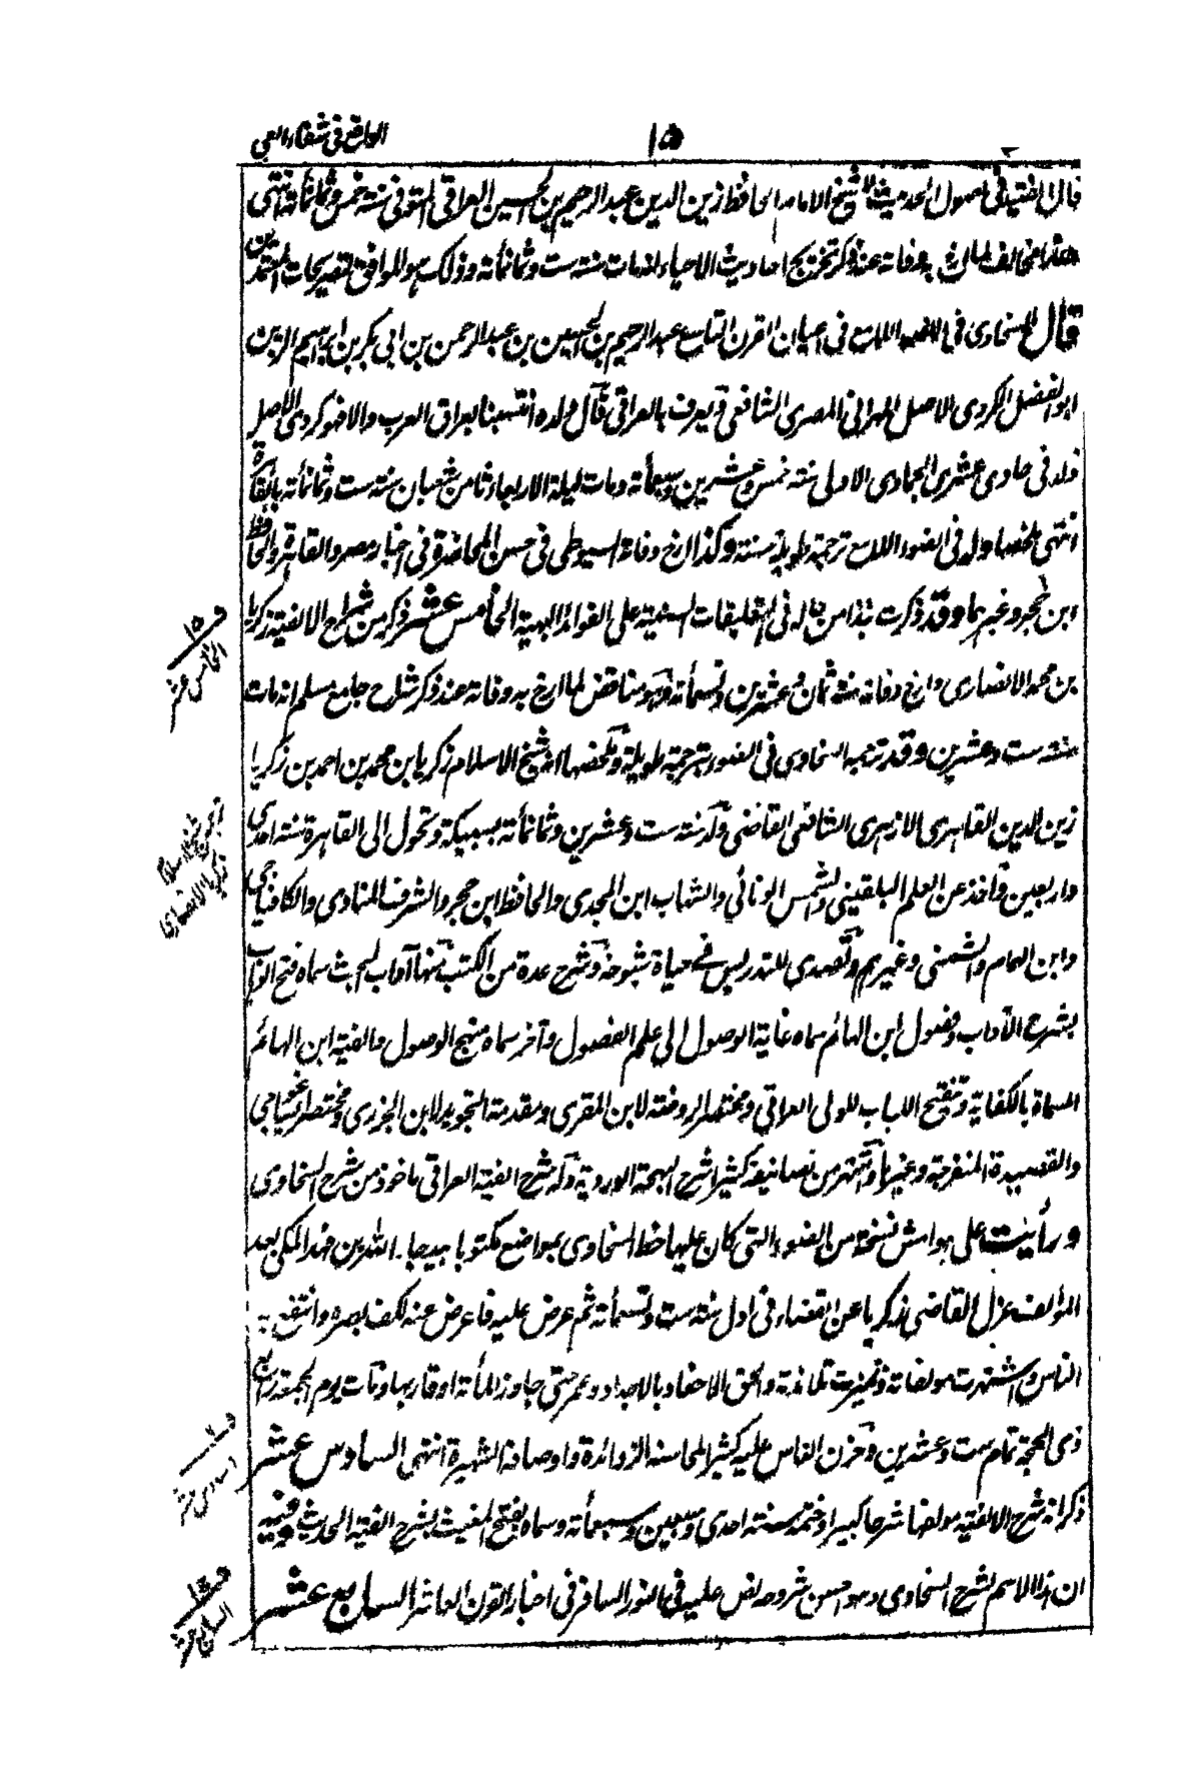 ١٥
قال الفيته في اصول الحديث للشيخ الامام الحافظ زين الدين عبد الرحيم بن الحسين العراقي المتوفى سنة خمس وثمانمائة انتهى
هذا مخالف لما ارخ به وفاته عند ذكر تخريج احاديث الاحياء انه مات سنة ست وثمانمائة وذلك هو الموافق لتصريحات المعتمدين
قال السخاوي في الضوء اللامع في اعيان القرن التاسع عبد الرحيم بن الحسين بن عبد الرحمن بن ابي بكر بن ابراهيم الزين
ابو الفضل الكردي الاصل المهراني المصري الشافعي ويعرف بالعراقي قال ولده انتسبنا لعراق العرب والا فهو كردي الاصل
ولد في حادي عشري الجمادى الاولى سنة خمس وعشرين وسبعمأة ومات ليلة الاربعاء ثامن شعبان سنة ست وثمانمأة بالقاهرة
انتهى ملخصا وله في الضوء اللامع ترجمة طويلة حسنة وكذا ارخ وفاته السيوطي في حسن المحاضرة في اخبار مصر والقاهرة والحافظ
ابن حجر وغيرهما وقد ذكرت نبذا من حاله في التعليقات السنية على الفوائد البهية الخامس عشر ذكر من شراح الالفية زكريا
بن محمد الانصاري وارخ وفاته سنة ثمان وعشرين وتسعمأة وهو مناقض لما ارخ به وفاته عند ذكر شراح جامع مسلم انه مات
سنة ست وعشرين وقد ترجمه السخاوي في الضوء بترجمة طويلة وملخصها انه شيخ الاسلام زكريا بن محمد بن احمد بن زكريا
زين الدين القاهري الازهري الشافعي القاضي ولد سنة ست وعشرين وثمانمأة بسنيكة وتحول الى القاهرة سنة احدى
واربعين واخذ عن العلم البلقيني والشمس الونائي والشهاب ابن المجدي والحافظ ابن حجر والشرف المناوي والكافيجي
وابن الهمام والشمني وغيرهم وتصدى للتدريس في حياة شيوخه وشرح عدة من الكتب منها آداب البحث سماه فتح الوهاب
بشرح الآداب وفصول ابن الهائم سماه غاية الوصول الى علم الفصول وآخر سماه منهج الوصول والفية ابن الهائم
المسماة بالكفاية وتنقيح اللباب للولي العراقي ومختصر الروضة لابن المقري ومقدمة التجويد لابن الجزري ومختصر
والقصيدة المنفرجة وغيرها واشتهر من تصانيفه كثيرا شرح البهجة الوردية وله شرح الفية العراقي ماخوذ من شرح السخاوي
ورأيت على هوامش نسخة من الضوء التي كان عليها خط السخاوي بمواضع مكتوبا جار الله بن فهد المكي بعد
المؤلف عزل القاضي زكريا عن القضاء في اول سنة ست وتسعمأة ثم عرض عليه فاعرض عنه لكف بصره وانتفع به
الناس واشتهرت مولفاته وتميزت تلامذته والحق الاحفاد بالاجداد وعمر حتى جاوز المأة او قاربها ومات يوم الجمعة رابع
ذي الحجة تمام ست وعشرين وحزن الناس عليه كثيرا لمحاسنه الزائدة واوصافه الشهيرة انتهى السادس عشر
ذكر انه شرح الالفية مولفها شرحا كبيرا وختمه سنة احدى وسبعين وسبعمأة وسماه بفتح المغيث بشرح الفية الحديث وفيه
ان هذا الاسم لشرح السخاوي وهو احسن شروحه نص عليه في النور السافر في اخبار القرن العاشر السابع عشر
الخامس عشر
زكريا الانصاري
السادس عشر
السابع عشر